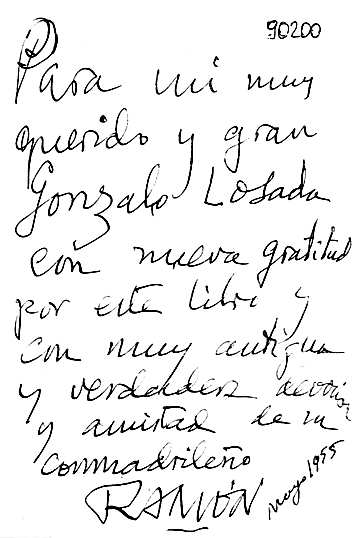 90200
Para mi muy
querido y gran
Gonzalo Losada
con nueva gratitud
por este libro y
con muy antigua
y verdadera devoción
y amistad de su
conmadrileño
RAMÓN
mayo 1955